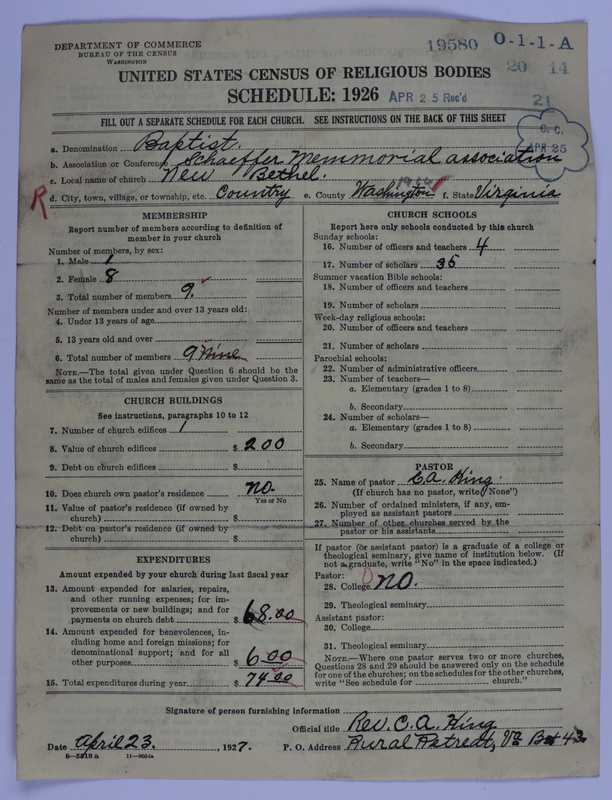 DEPARTMENT OF COMMERCE
BUREAU OF THE CENSUS
WASHINGTON
19580 O-1-1-A
20 14
21
UNITED STATES CENSUS OF RELIGIOUS BODIES
SCHEDULE: 1926 APR 25 Rec'd
FILL OUT A SEPARATE SCHEDULE FOR EACH CHURCH. SEE INSTRUCTIONS ON THE BACK OF THIS SHEET
C. C.
APR 25
a. Denomination Baptist.
b. Association or Conference Schaeffer Memmorial association
c. Local name of church New Bethel.
R d. City, town, village, or township, etc. Country e. County Washington f. State Virginia
MEMBERSHIP
Report number of members according to definition of
member in your church
Number of members, by sex:
1. Male 1
2. Female 8
3. Total number of members 9.
Number of members under and over 13 years old:
4. Under 13 years of age
5. 13 years old and over
6. Total number of members 9 Nine
NOTE.—The total given under Question 6 should be the
same as the total of males and females given under Question 3.
CHURCH BUILDINGS
See instructions, paragraphs 10 to 12
7. Number of church edifices 1
8. Value of church edifices $ 200
9. Debt on church edifices $
10. Does church own pastor's residence no.
Yes or No
11. Value of pastor's residence (if owned by
church) $
12. Debt on pastor's residence (if owned by
church) $
EXPENDITURES
Amount expended by your church during last fiscal year
13. Amount expended for salaries, repairs,
and other running expenses; for im-
provements or new buildings; and for
payments on church debt $ 68.00
14. Amount expended for benevolences, in-
cluding home and foreign missions; for
denominational support; and for all
other purposes $ 6.00
15. Total expenditures during year $ 74.00
CHURCH SCHOOLS
Report here only schools conducted by this church
Sunday schools:
16. Number of officers and teachers 4
17. Number of scholars 35
Summer vacation Bible schools:
18. Number of officers and teachers
19. Number of scholars
Week-day religious schools:
20. Number of officers and teachers
21. Number of scholars
Parochial schools:
22. Number of administrative officers
23. Number of teachers—
a. Elementary (grades 1 to 8)
b. Secondary
24. Number of scholars—
a. Elementary (grades 1 to 8)
b. Secondary
PASTOR
25. Name of pastor C.A. King.
(If church has no pastor, write "None")
26. Number of ordained ministers, if any, em-
ployed as assistant pastors
27. Number of other churches served by the
pastor or his assistants
If pastor (or assistant pastor) is a graduate of a college or
theological seminary, give name of institution below. (If
not a graduate, write "No" in the space indicated.)
Pastor:
28. College no.
29. Theological seminary
Assistant pastor:
30. College
31. Theological seminary
NOTE.—Where one pastor serves two or more churches,
Questions 28 and 29 should be answered only on the schedule
for one of the churches; on the schedules for the other churches,
write "See schedule for church."
Signature of person furnishing information
Official title Rev. C. A. King
Date April 23. , 1927. P. O. Address Rural Retreat, Va Box 43
8-5518 a 11-9034a